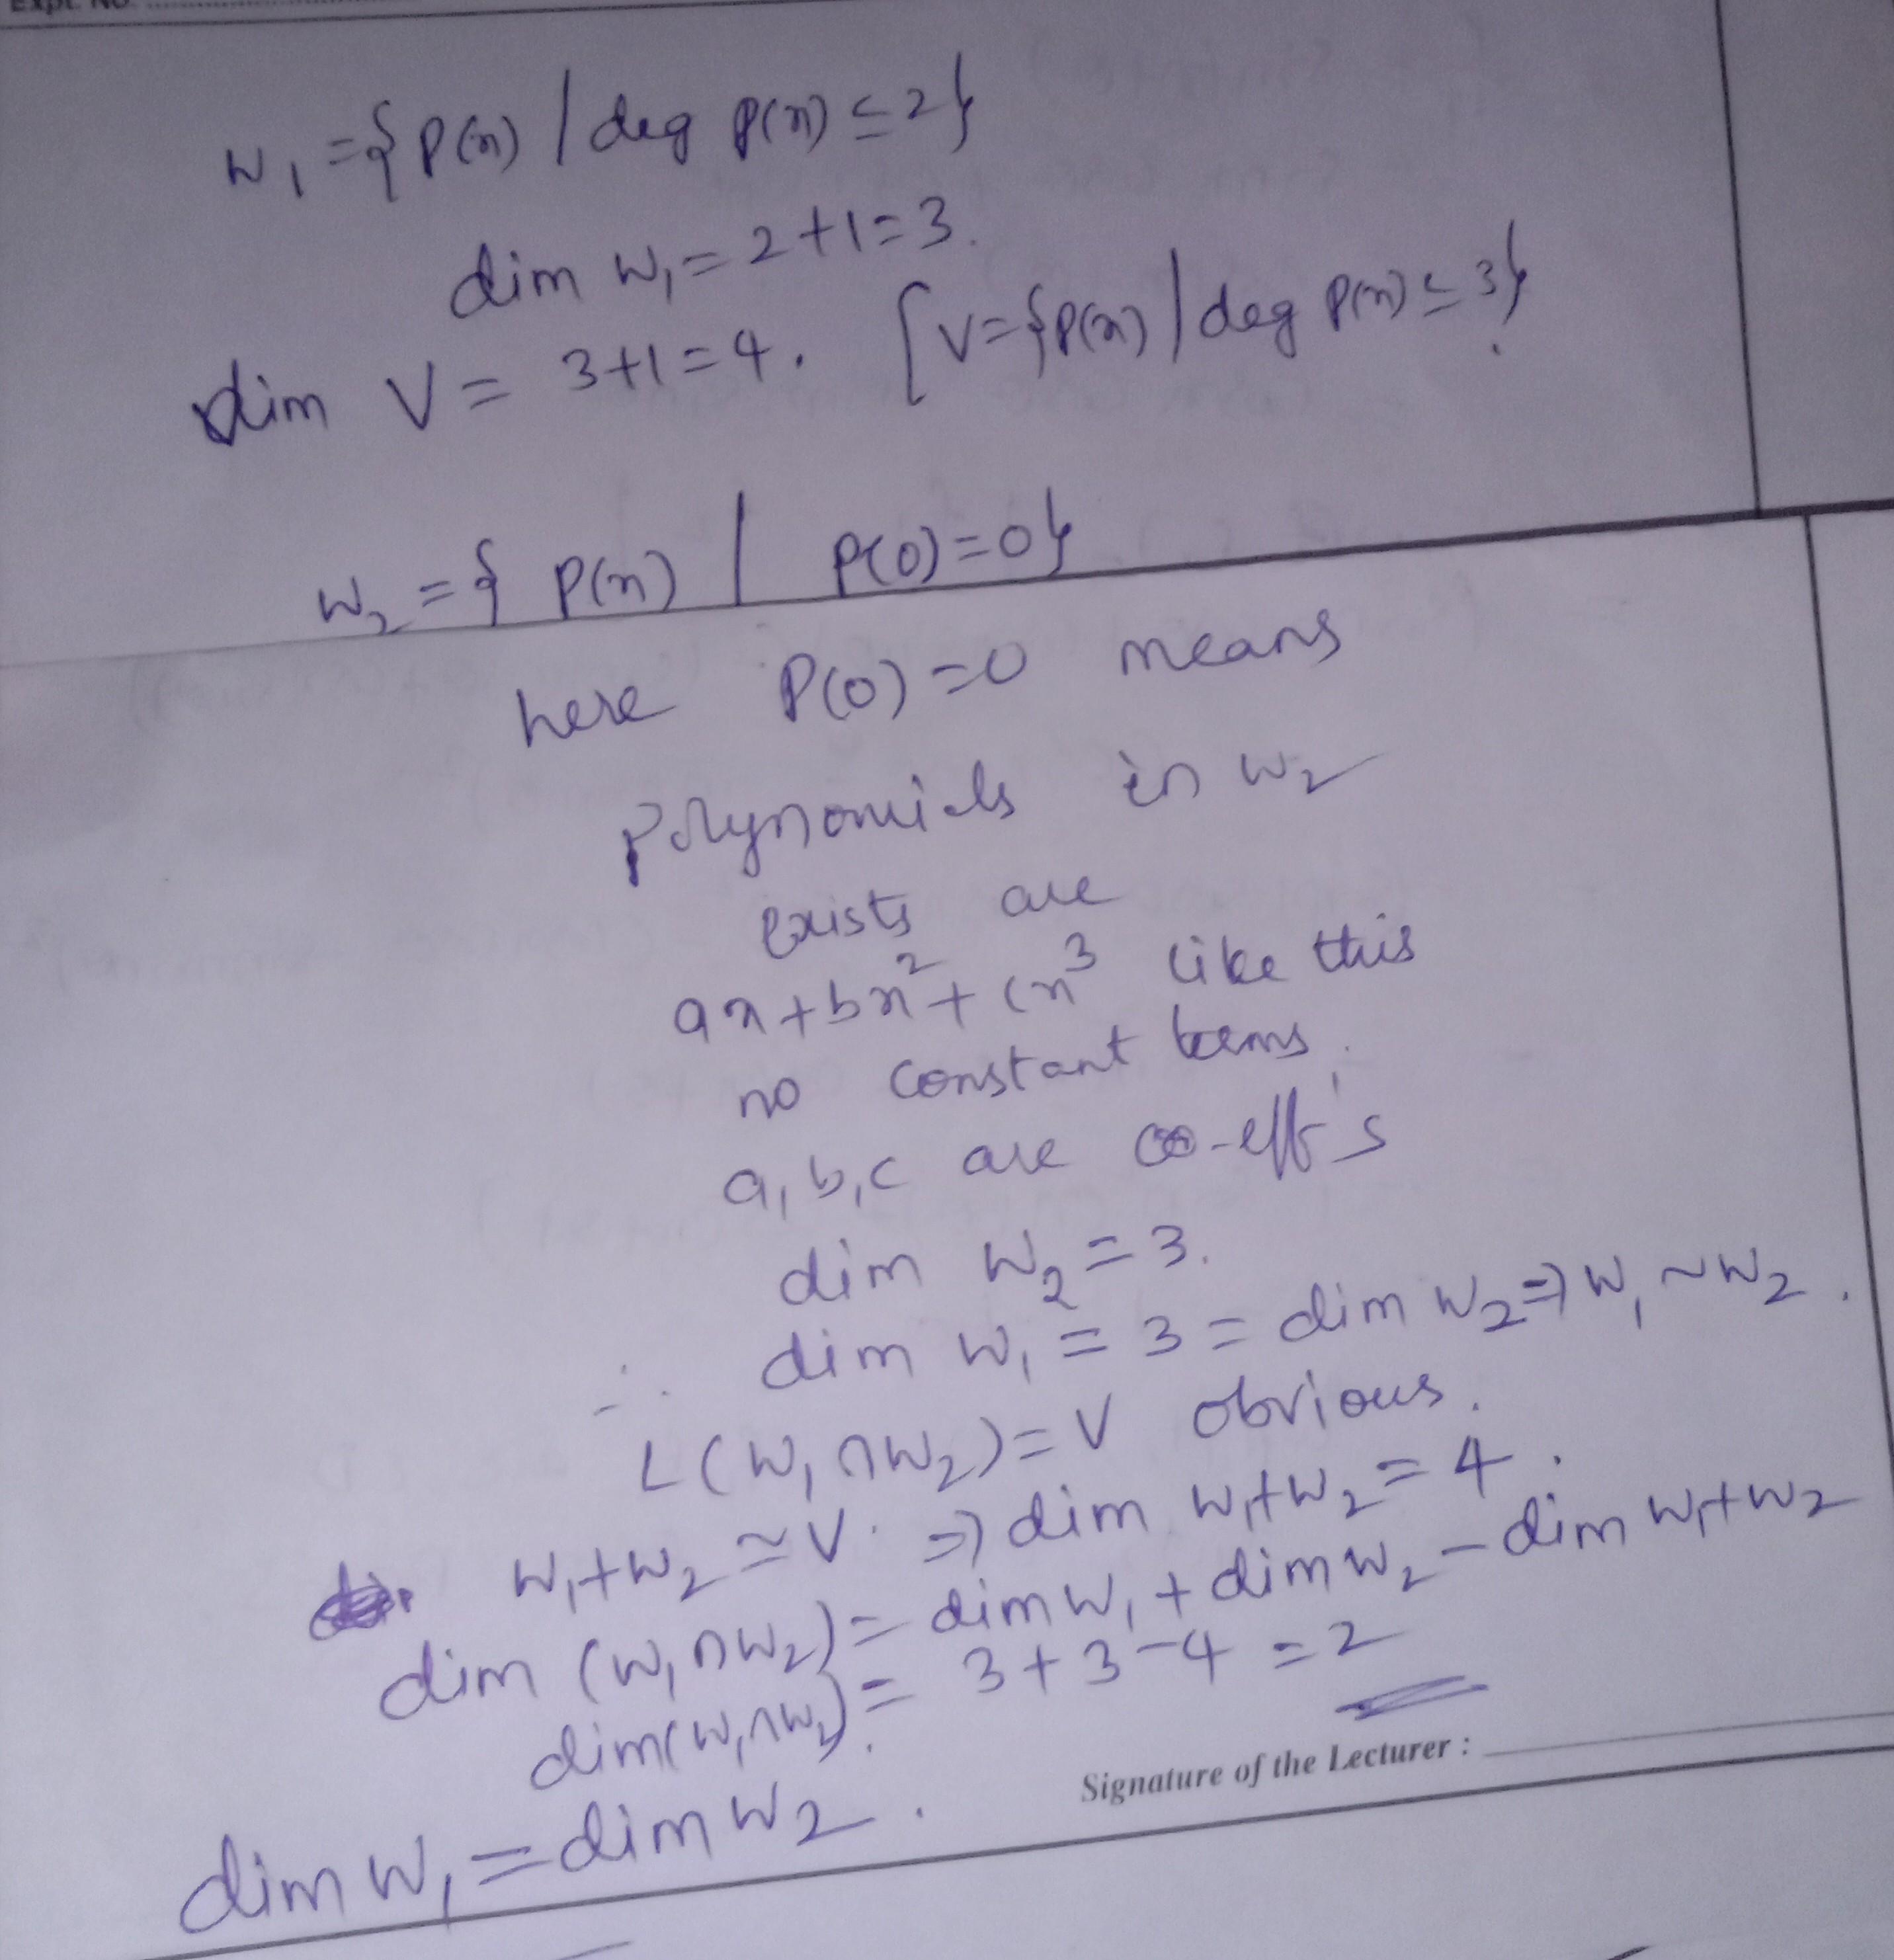 Expt. No.
W₁ = {P(x) / deg P(x) ≤ 2}
dim W₁ = 2+1=3.
dim V = 3+1=4. [V={P(x) / deg P(x) ≤ 3}.
W₂ = { P(x) / P(0)=0}
here P(0)=0 means
polynomials in W₂
exists are
ax+bx²+cx³ like this
no constant terms.
a, b, c are co-eff's
dim W₂ = 3.
∴ dim W₁ = 3 = dim W₂ ⇒ W₁ ~ W₂.
L(W₁ ∩ W₂) = V obvious.
W₁+W₂ ≃ V. ⇒ dim W₁+W₂ = 4.
dim (W₁ ∩ W₂) = dim W₁ + dim W₂ - dim W₁+W₂
dim(W₁∩W₂) = 3+3-4 = 2
Signature of the Lecturer :
dim W₁ = dim W₂.